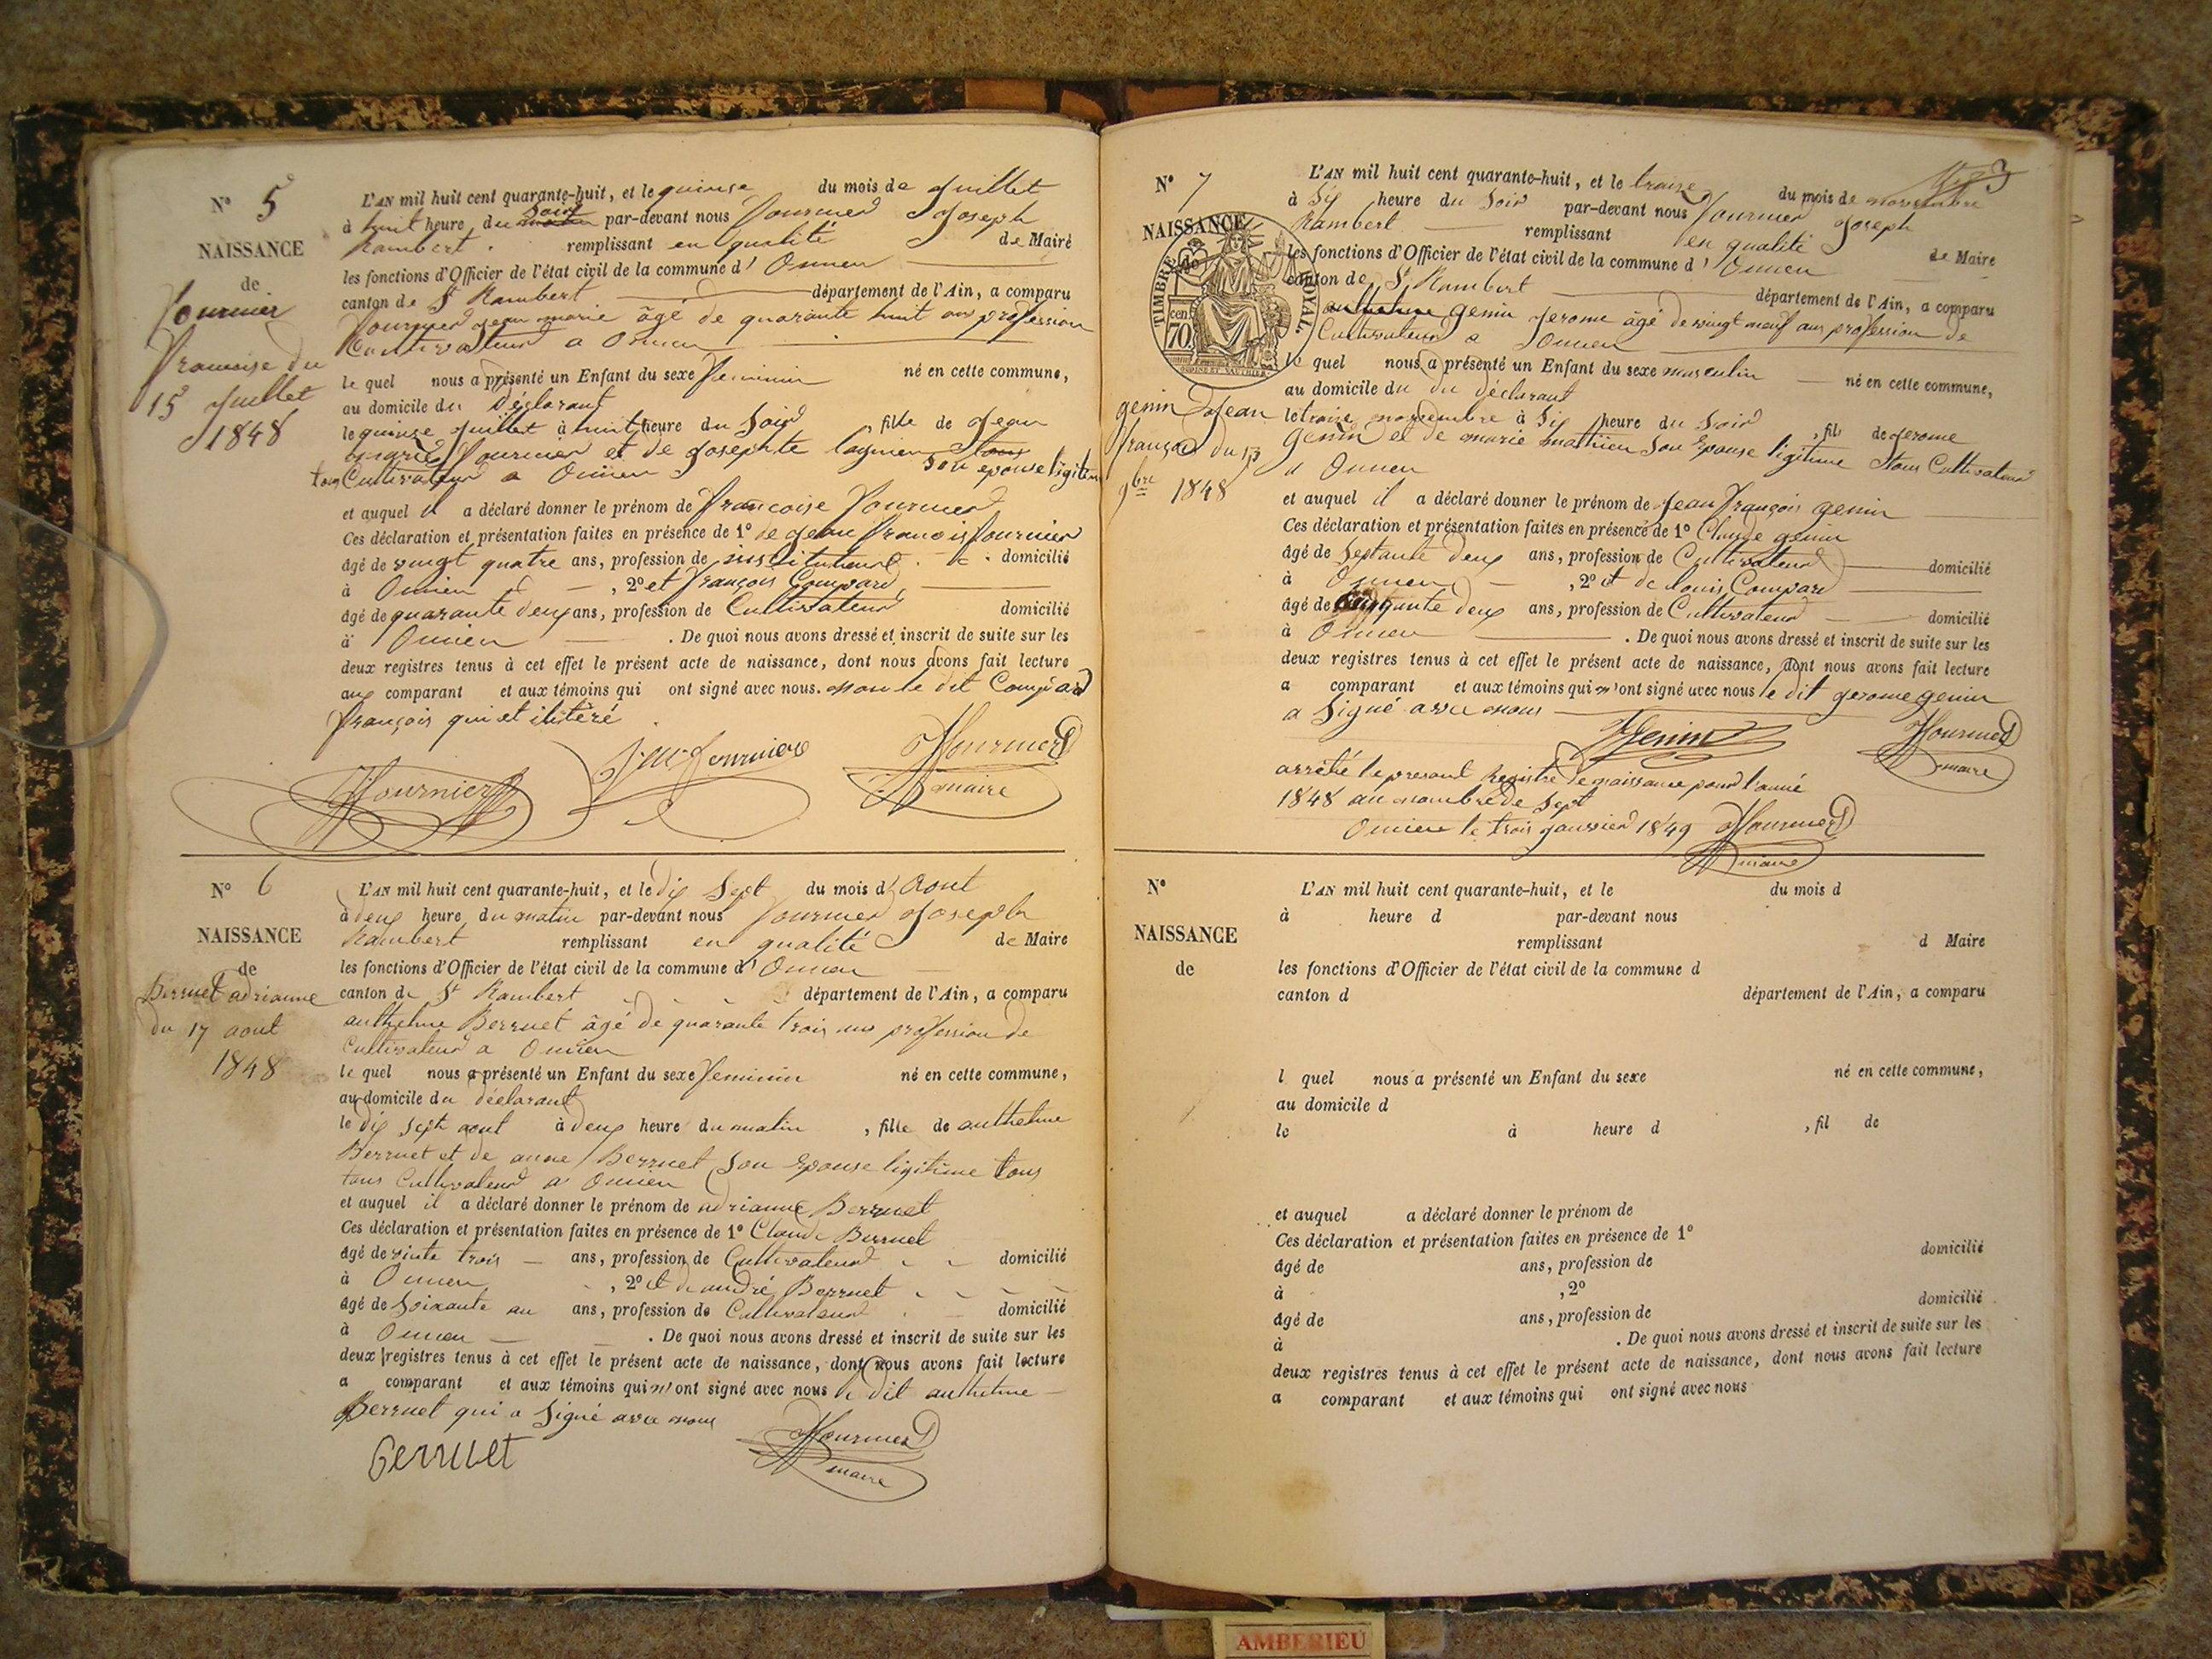 N° 5
NAISSANCE
de
Fournier
Francoise du
15 Juillet
1848
L'AN mil huit cent quarante-huit, et le quinse du mois de Juillet
à huit heure du soir par-devant nous Fournier Joseph
Rambert remplissant en qualité de Maire
les fonctions d'Officier de l'état civil de la commune d' Oncieu
canton de St Rambert département de l'Ain, a comparu
Fournier Jean marie âgé de quarante huit ans profession
Cultivateur a Oncieu
le quel nous a présenté un Enfant du sexe Feminin né en cette commune,
au domicile du Déclarant
le quinse Juillet à huit heure du Soir, fille de Jean
Fournier et de Josephte son epouse légitime
tous Cultivateur a Oncieu
et auquel il a déclaré donner le prénom de Francoise Fournier
Ces déclaration et présentation faites en présence de 1° de Jean Francois Fournier
âgé de vingt quatre ans, profession de instituteur domicilié
à Oncieu, 2° et François Compard
âgé de quarante deux ans, profession de Cultivateur domicilié
à Oncieu. De quoi nous avons dressé et inscrit de suite sur les
deux registres tenus à cet effet le présent acte de naissance, dont nous avons fait lecture
aux comparant et aux témoins qui ont signé avec nous. non le dit Compard
François qui et ilitéré
Fournier J. M. Fournier Fournier
maire
N° 6
NAISSANCE
de
Berruet adrianne
du 17 aout
1848
L'AN mil huit cent quarante-huit, et le dix Sept du mois d' Aout
à deux heure du matin par-devant nous Fournier Joseph
Rambert remplissant en qualité de Maire
les fonctions d'Officier de l'état civil de la commune d' Oncieu
canton de St Rambert département de l'Ain, a comparu
anthelme Berruet âgé de quarante trois ans profession de
Cultivateur a Oncieu
le quel nous a présenté un Enfant du sexe Feminin né en cette commune,
au domicile du déclarant
le dix sept aout à deux heure du matin, fille de anthelme
Berruet et de anne Berruet Son Epouse ligitime tous
tous Cultivateur a Oncieu
et auquel il a déclaré donner le prénom de adrianne Berruet
Ces déclaration et présentation faites en présence de 1° Claude Berruet
âgé de trois ans, profession de Cultivateur domicilié
à Oncieu, 2° et de andré Berruet
âgé de Soixante an ans, profession de Cultivateur domicilié
à Oncieu. De quoi nous avons dressé et inscrit de suite sur les
deux registres tenus à cet effet le présent acte de naissance, dont nous avons fait lecture
a comparant et aux témoins qui n'ont signé avec nous le dit anthelme
Berruet qui a Signé avec nous
Berruet Fournier
maire
N° 7
NAISSANCE
de
TIMBRE ROYAL.
cent 70
genin Jean
françois du 13
9bre 1848
L'AN mil huit cent quarante-huit, et le traize du mois de novembre
à Six heure du Soir par-devant nous Fournier Joseph
Rambert remplissant en qualité de Maire
les fonctions d'Officier de l'état civil de la commune d' Oncieu
canton de St Rambert département de l'Ain, a comparu
genin Jerome âgé de vingt neuf ans profession de
Cultivateur a Oncieu
le quel nous a présenté un Enfant du sexe masculin né en cette commune,
au domicile du du déclarant
le traize novembre à Six heure du Soir, fils de Jerome
Genin et de marie mathieu Son Epouse ligitime tous Cultivateur
a Oncieu
et auquel il a déclaré donner le prénom de Jean François genin
Ces déclaration et présentation faites en présence de 1° Claude genin
âgé de Septante deux ans, profession de Cultivateur domicilié
à Oncieu, 2° et de louis Compard
âgé de deux ans, profession de Cultivateur domicilié
à Oncieu. De quoi nous avons dressé et inscrit de suite sur les
deux registres tenus à cet effet le présent acte de naissance, dont nous avons fait lecture
a comparant et aux témoins qui n'ont signé avec nous le dit gerome genin
a Signé avec nous
Genin Fournier
maire
arrêté le presant Registre de naissance pour l'anné
1848 au nombre de Sept
Oncieu le trois Janvier 1849 Fournier
maire
N°
NAISSANCE
de
L'AN mil huit cent quarante-huit, et le du mois d
à heure d par-devant nous
remplissant d Maire
les fonctions d'Officier de l'état civil de la commune d
canton d département de l'Ain, a comparu
l quel nous a présenté un Enfant du sexe né en cette commune,
au domicile d
le à heure d, fil de
et auquel a déclaré donner le prénom de
Ces déclaration et présentation faites en présence de 1°
âgé de ans, profession de domicilié
à, 2°
âgé de ans, profession de domicilié
à. De quoi nous avons dressé et inscrit de suite sur les
deux registres tenus à cet effet le présent acte de naissance, dont nous avons fait lecture
a comparant et aux témoins qui ont signé avec nous
AMBERIEU